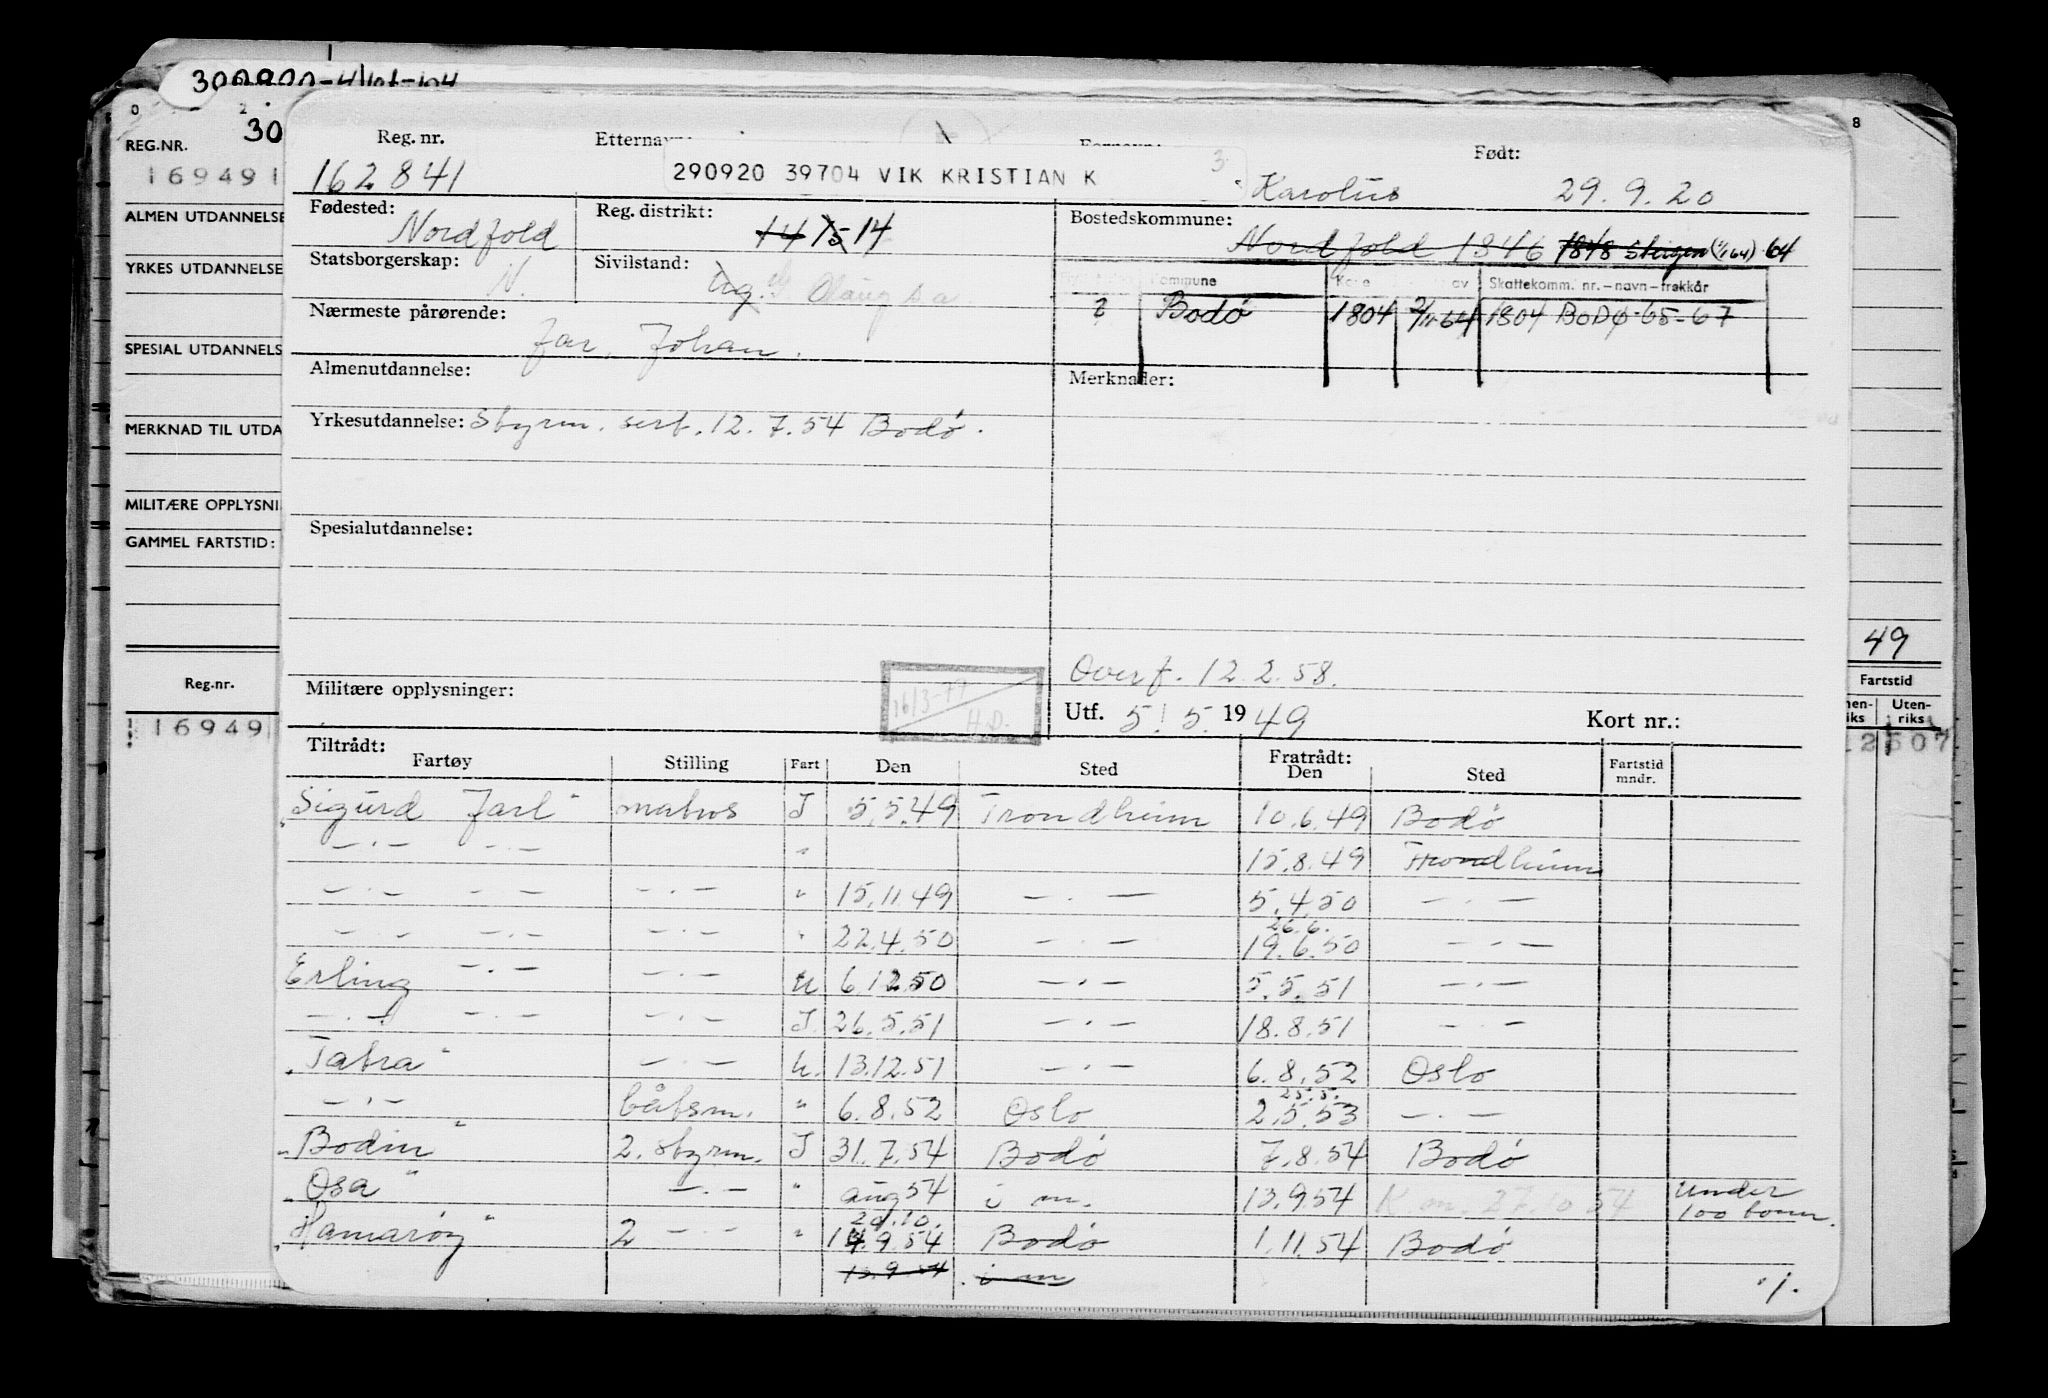 300900-41
0 2 8
REG.NR. 30
169491
ALMEN UTDANNELSE
YRKES UTDANNELSE
SPESIAL UTDANNELS
MERKNAD TIL UTDA
MILITÆRE OPPLYSNI
GAMMEL FARTSTID:
Reg.nr.
16949
49
Fartstid
nen-riks Uten-riks
12507
Reg. nr. Etternavn: Født:
162841 290920 39704 VIK KRISTIAN K 3 Karolus 29.9.20
Fødested: Nordfold Reg. distrikt: 14 15 14 Bostedskommune: Nordfold 1846 1848 Steigen (1/1 64) 64
Statsborgerskap: N. Sivilstand: Ug. G Olaug
Kommune av Skattekomm. nr.—navn—frakkår
2 Bodø 1804 64 1804 BODØ-65-67
Nærmeste pårørende: far, Johan.
Almenutdannelse: Merknader:
Yrkesutdannelse: Styrm. sert. 12.7.54 Bodø.
Spesialutdannelse:
Overf. 12.2.58.
Militære opplysninger: 16/3-79 H.D. Utf. 5/5 1949 Kort nr.:
Tiltrådt: Fratrådt:
Fartøy Stilling Fart Den Sted Den Sted Fartstid mndr.
"Sigurd Jarl" matros I 5.5.49 Trondheim 10.6.49 Bodø
—·— —·— " 15.8.49 Trondheim
—·— —·— —·— " 15.11.49 —·— 5.4.50 —·—
26.6.
—·— —·— —·— " 22.4.50 —·— 19.6.50 —·—
Erling —·— —·— U 6.12.50 —·— 5.5.51 —·—
—·— —·— —·— I. 26.5.51 —·— 18.8.51 —·—
"Tatra" —·— U. 13.12.51 —·— 6.8.52 Oslo
25.5.
—·— båtsm. " 6.8.52 Oslo 2.5.53 —·—
"Bodin" 2. styrm. I 31.7.54 Bodø 7.8.54 Bodø
"Osa" —·— " aug 54 i m. 13.9.54 K.m. 27.10.54 under 100 tonn.
20.10.
"Hamarøy" 2 —·— " 14.9.54 Bodø 1.11.54 Bodø
13.9.54 i m ·/.